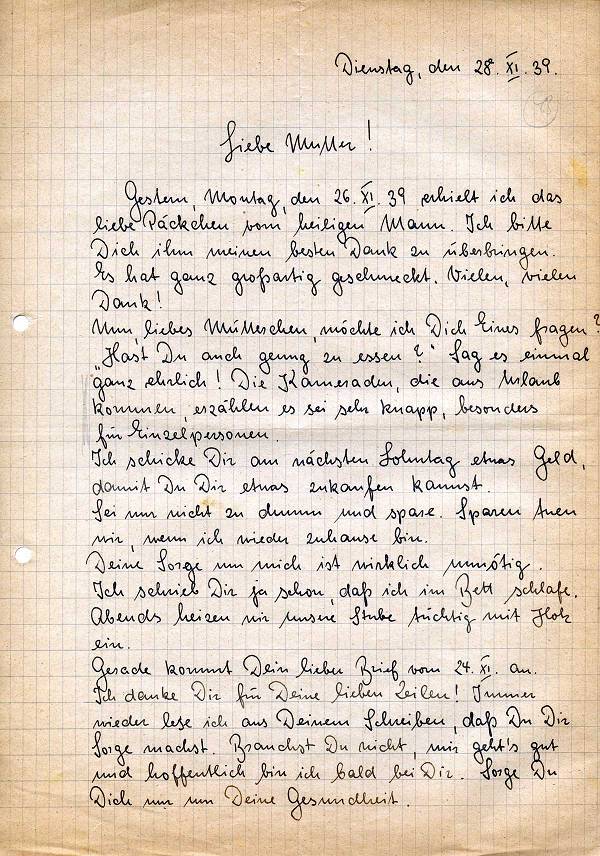 Dienstag, den 28. XI. 39.
Liebe Mutter!
Gestern, Montag, den 26. XI. 39 erhielt ich das
liebe Päckchen vom heiligen Mann. Ich bitte
Dich ihm meinen besten Dank zu überbringen.
Es hat ganz großartig geschmeckt. Vielen, vielen
Dank!
Nun, liebes Mütterchen, möchte ich Dich Eines fragen?
„Hast Du auch genug zu essen?" Sag es einmal
ganz ehrlich! Die Kameraden, die aus Urlaub
kommen, erzählen es sei sehr knapp, besonders
für Einzelpersonen.
Ich schicke Dir am nächsten Lohntag etwas Geld,
damit Du Dir etwas zukaufen kannst.
Sei nur nicht zu dumm und spare. Sparen tuen
wir, wenn ich wieder zuhause bin.
Deine Sorge um mich ist wirklich unnötig.
Ich schrieb Dir ja schon, daß ich im Bett schlafe.
Abends heizen wir unsere Stube tüchtig mit Holz
ein.
Gerade kommt Dein lieber Brief vom 24. XI. an.
Ich danke Dir für Deine lieben Zeilen! Immer
wieder lese ich aus Deinem Schreiben, daß Du Dir
Sorge machst. Brauchst Du nicht, mir geht's gut
und hoffentlich bin ich bald bei Dir. Sorge Du
Dich nur um Deine Gesundheit.